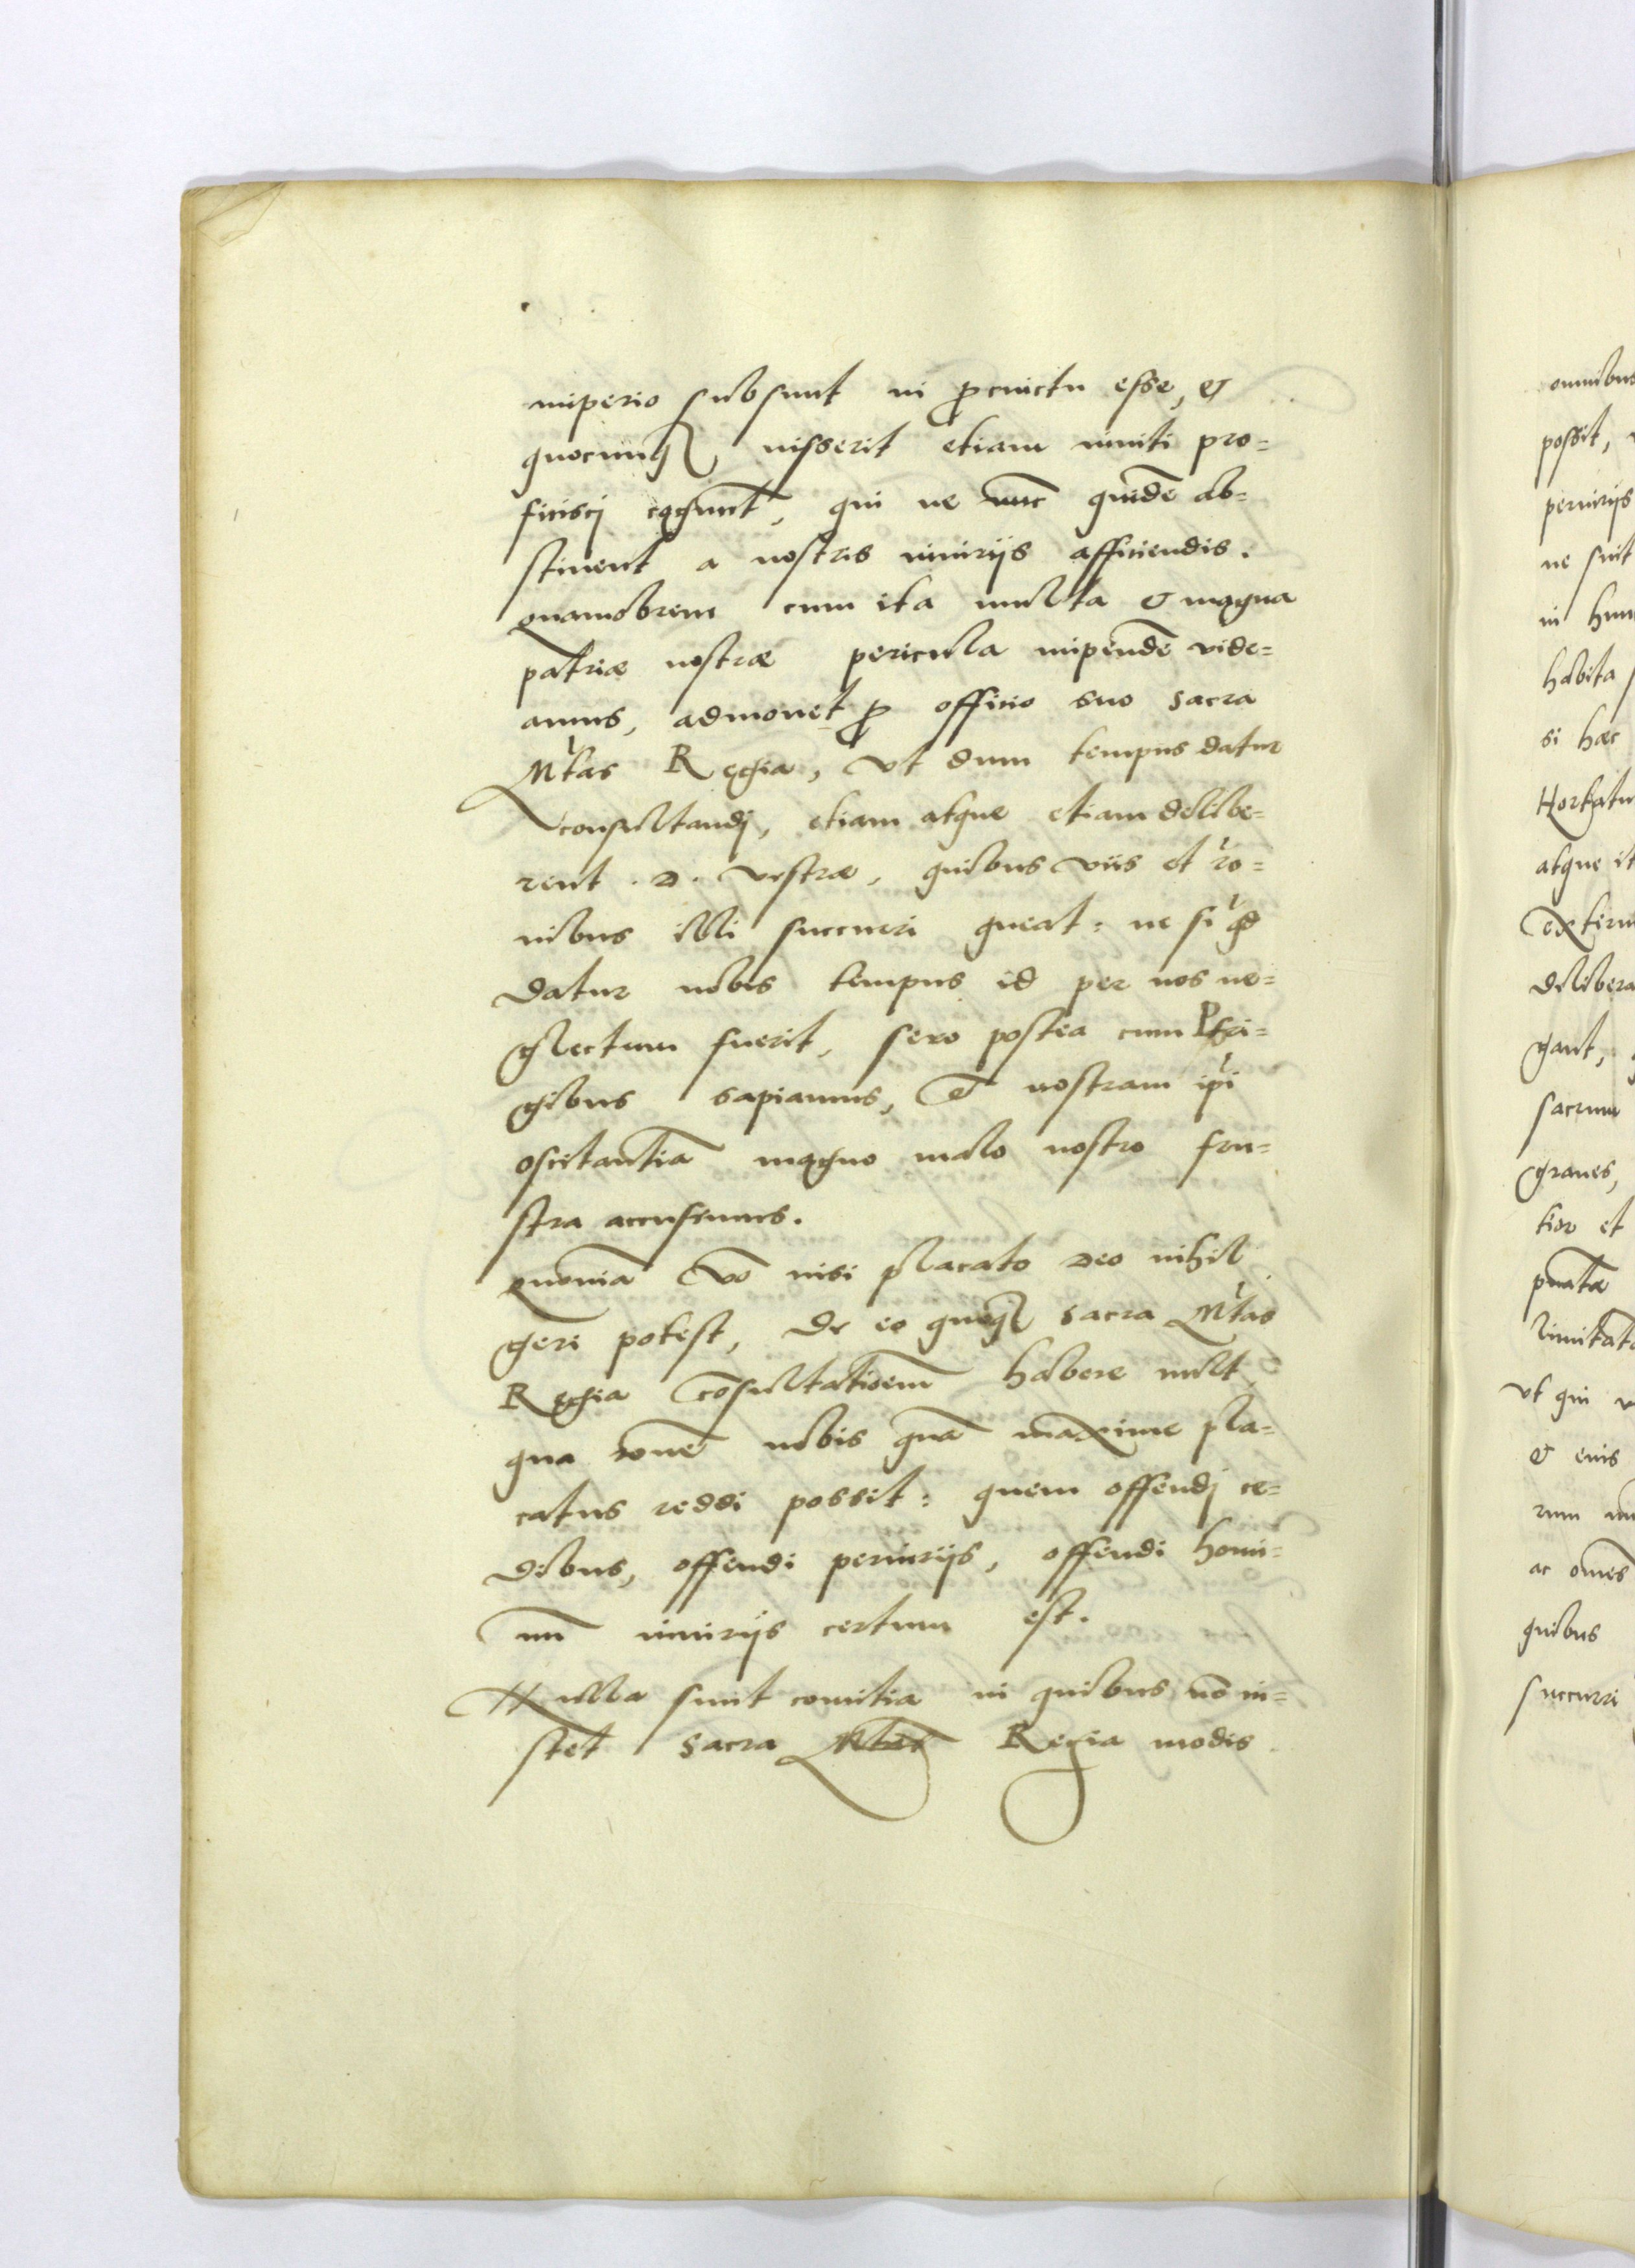 imperio subsunt in ꝓcinctu esse, et
quocunqꝫ iusserit etiam inuiti pro=
ficiscj cogunt̃, qui ne nũc quidẽ ab=
stinent a nostris iniurijs afficiendis.
quamobrem cum ita multa et magna
patriæ nostræ pericula impendẽ vide=
amus, admonet ꝓ officio suo sacra
Mtas Regia, vt dum tempus datur
consultandj, etiam atque etiam delibe=
rent .D. vestræ, quibus viis et rõ=
nibus illi succurri queat: ne si qd
datur nobis tempus id per nos ne=
glectum fuerit, sero postea cum Phri=
gibus sapiamus, et nostram ipĩ
oscitantiã magno malo nostro fru=
stra accusemus.
quoniã vo nisi placato Deo nihil
geri potest, de eo quoqꝫ sacra Mtas
Regia cõsultationem habere uult,
qua rõne nobis quã maxime pla=
catus reddi possit: quem offendj ce=
dibus, offendi periurijs, offendi homi=
nũ iniurijs certum est.
Nulla sunt comitia in quibus nõ in=
stet sacra Mtas Regia modis
omnibus
possit,
periurijs
ne sint
in
habita
si hæc
Hortatur
atque
deliber
gant,
sacrum
graues,
tior et
vt qui
et eius
rum
ac omẽs
quibus
succurri